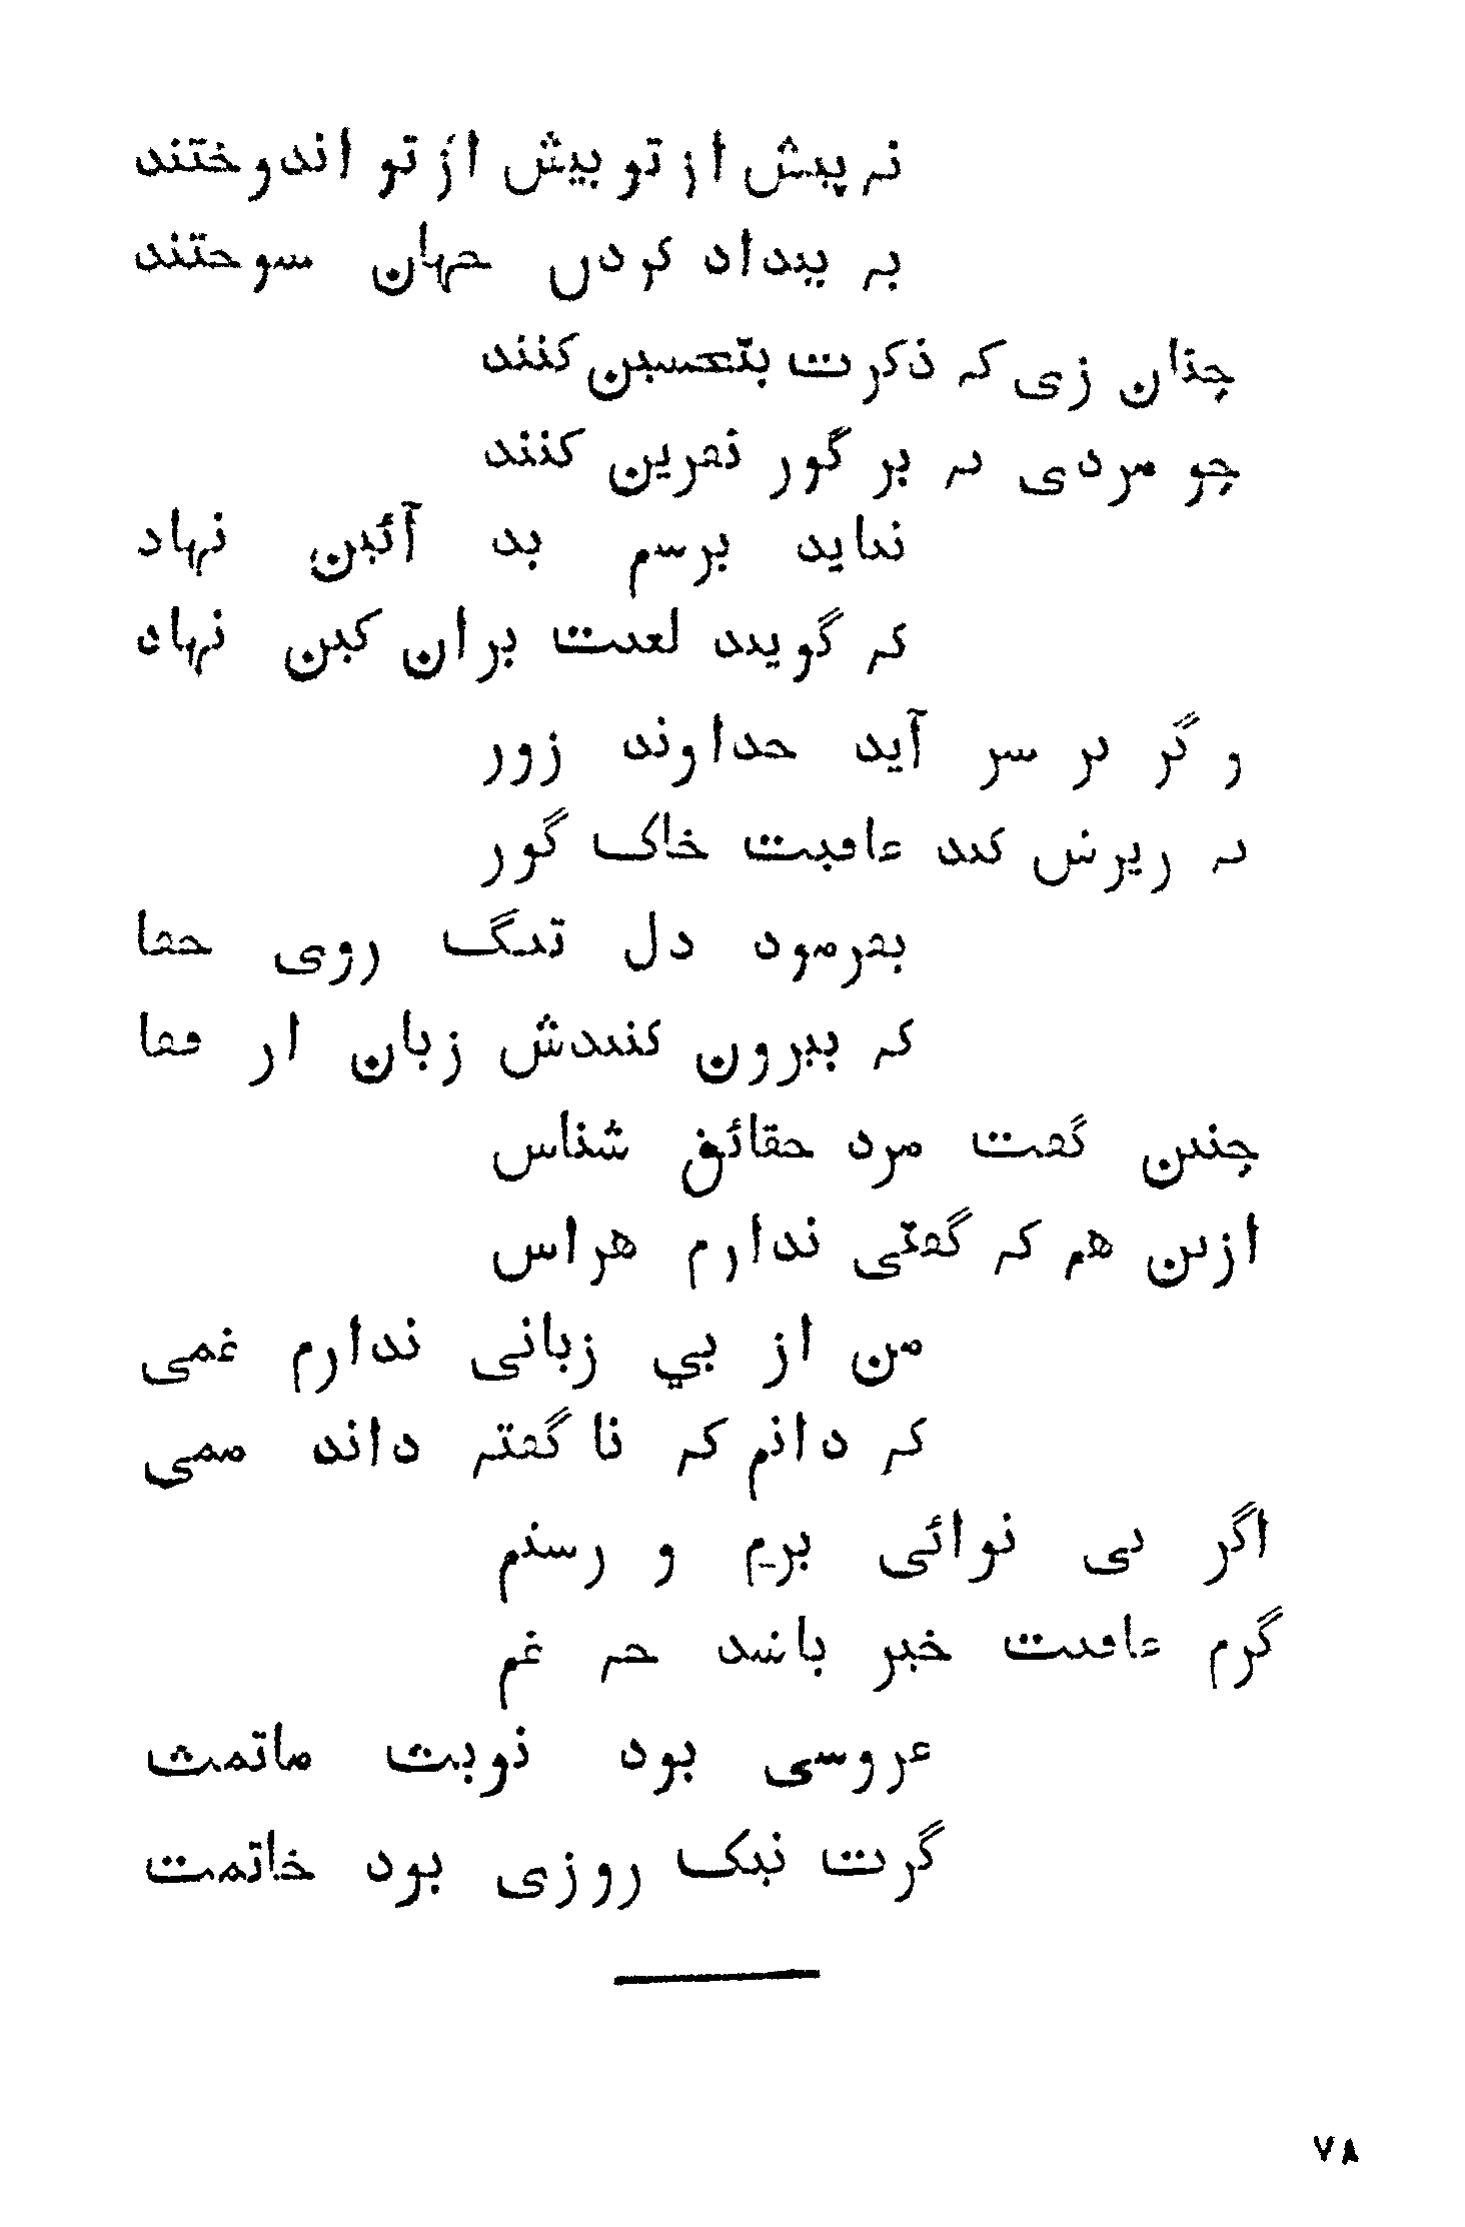 نه پیش از تو بیش از تو اندوختند
به بیداد کردن جهان سوختند
چنان زی که ذکرت بتحسین کنند
چو مردی نه بر گور نفرین کنند
نباید برسم بد آئین نهاد
که گویند لعنت بران کین نهاد
و گر بر سر آید خداوند زور
نه زیرش کند عاقبت خاک گور
بفرمود دل تنگ روی جفا
که بیرون کنندش زبان از قفا
چنین گفت مرد حقائق شناس
ازین هم که گفتی ندارم هراس
من از بی زبانی ندارم غمی
که دانم که نا گفته داند همی
اگر بی نوائی برم و رستم
گرم عاقبت خیر باشد چه غم
عروسی بود نوبت ماتمت
گرت نیک روزی بود خاتمت
۷۸